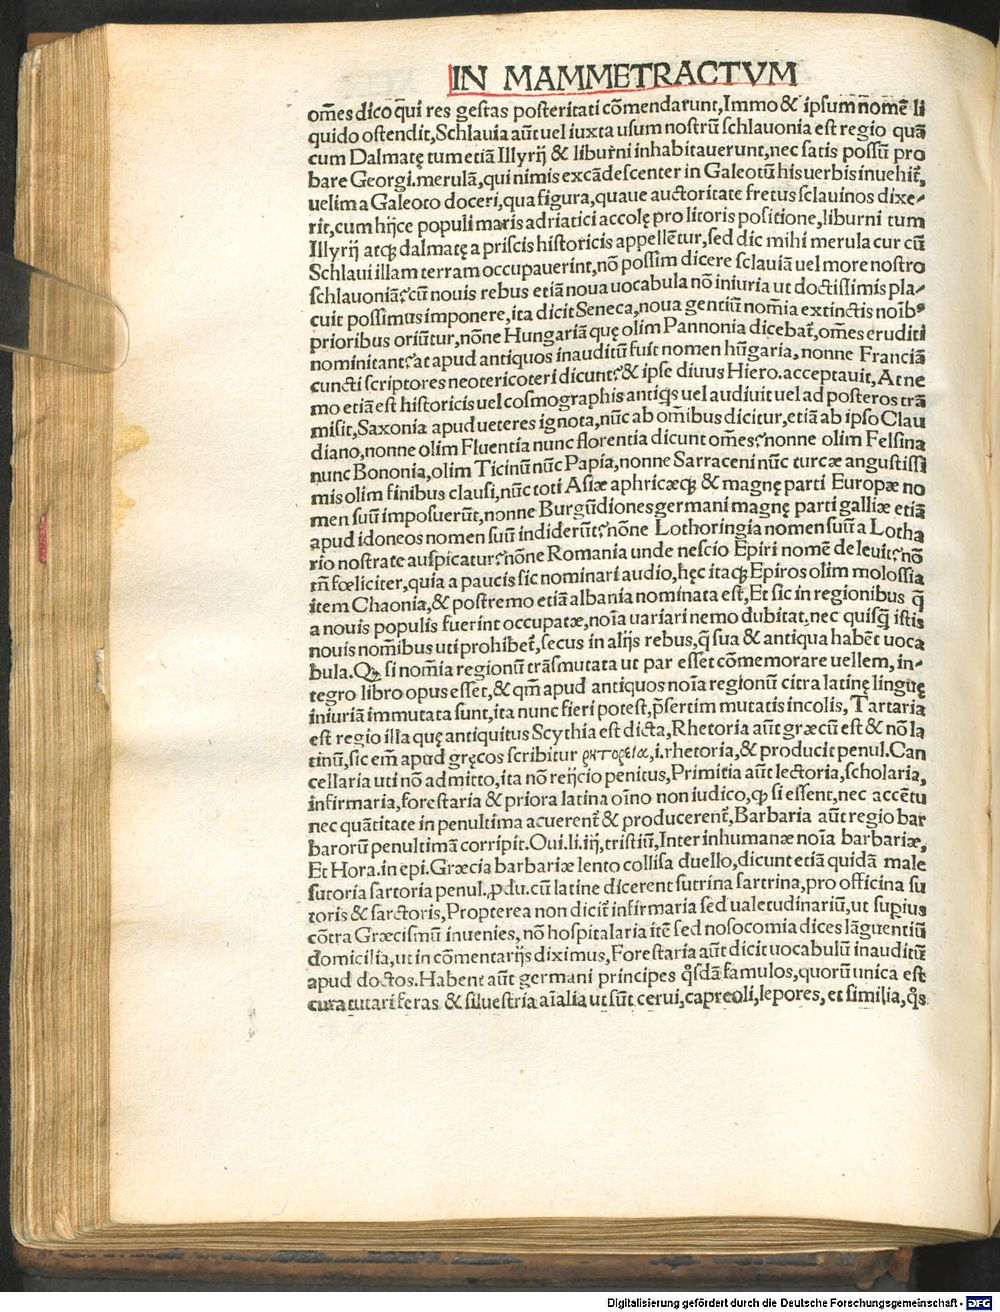 IN MAMMETRACTVM
om̃es dico q̃ui res gestas posteritati cõmendarunt,Immo & ipsum nomẽ li
quido ostendit,Schlauia aũt uel iuxta usum nostrũ schlauonia est regio quã
cum Dalmatę tum etiã Illyrij & liburni inhabitauerunt,nec satis possũ pro
bare Georgi.merulã,qui nimis excãdescenter in Galeotũ his uerbis inuehit̃,
uelim a Galeoto doceri,qua figura,quaue auctoritate fretus sclauinos dixe-
rit,cum hijce populi maris adriatici accolę pro litoris positione,liburni tum
Illyrij atqꝫ dalmatę a priscis historicis appellẽtur,sed dic mihi merula cur cũ
Schlaui illam terram occupauerint,nõ possim dicere sclauiã uel more nostro
schlauoniã?cũ nouis rebus etiã noua uocabula nõ iniuria ut doctissimis pla-
cuit possimus imponere,ita dicit Seneca,noua gentiũ nom̃ia extinctis noĩbꝰ
prioribus oriũtur,nõne Hungariã quę olim Pannonia dicebat̃,om̃es eruditi
nominitant?at apud antiquos inauditũ fuit nomen hũgaria,nonne Franciã
cuncti scriptores neotericoteri dicunt?& ipse diuus Hiero.acceptauit,At ne
mo etiã est historicis uel cosmographis antiq̃s uel audiuit uel ad posteros trã
misit,Saxonia apud ueteres ignota,nũc ab om̃ibus dicitur,etiã ab ipso Clau
diano,nonne olim Fluentia nunc florentia dicunt om̃es?nonne olim Felsina
nunc Bononia,olim Ticinũ nũc Papia,nonne Sarraceni nũc turcæ angustissi
mis olim finibus clausi,nũc toti Asiæ aphricæqꝫ & magnę parti Europæ no
men suũ imposuerũt,nonne Burgũdiones germani magnę parti galliæ etiã
apud idoneos nomen suũ indiderũt?nõne Lothoringia nomen suũ a Lotha
rio nostrate auspicatur?nõne Romania unde nescio Epiri nomẽ deleuit?nõ
tm̃ fœliciter,quia a paucis sic nominari audio,hęc itaqꝫ Epiros olim molossia
item Chaonia,& postremo etiã albania nominata est,Et sic in regionibus q̃
a nouis populis fuerint occupatæ,noĩa uariari nemo dubitat,nec quisq̃ istis
nouis nom̃ibus uti prohibet̃,secus in alijs rebus,q̃ sua & antiqua habẽt uoca
bula.Qꝫ si nom̃ia regionũ trãsmutata ut par esset cõmemorare uellem, in-
tegro libro opus esset,& qm̃ apud antiquos noĩa regionũ citra latinę linguę
iniuriã immutata sunt,ita nunc fieri potest,p̃sertim mutatis incolis, Tartaria
est regio illa quę antiquitus Scythia est dicta,Rhetoria aũt græcũ est & nõ la
tinũ,sic em̃ apud gręcos scribitur ρητορεία,.i.rhetoria,& producit penul.Can
cellaria uti nõ admitto,ita nõ reijcio penitus,Primitia aũt lectoria,scholaria,
infirmaria,forestaria & priora latina oĩno non iudico,qꝫ si essent,nec accẽtu
nec quãtitate in penultima acuerent̃ & producerent̃,Barbaria aũt regio bar
barorũ penultimã corripit.Oui.li.iij,tristiũ,Inter inhumanæ noĩa barbariæ,
Et Hora.in epi.Græcia barbariæ lento collisa duello,dicunt etiã quidã male
sutoria sartoria penul.,ꝓdu.cũ latine dicerent sutrina sartrina,pro officina su
toris & sarctoris,Propterea non dicit̃ infirmaria sed ualetudinariũ,ut supius
cõtra Græcismũ inuenies, nõ hospitalaria itẽ sed nosocomia dices lãguentiũ
domicilia,ut in cõmentarijs diximus,Forestaria aũt dicit uocabulũ inauditũ
apud doctos.Habent aũt germani principes q̃sdã famulos,quorũ unica est
cura tutari feras & siluestria aĩalia ut sũt cerui,capreoli,lepores,et similia,q̃s
Digitalisierung gefördert durch die Deutsche Forschungsgemeinschaft - DFG